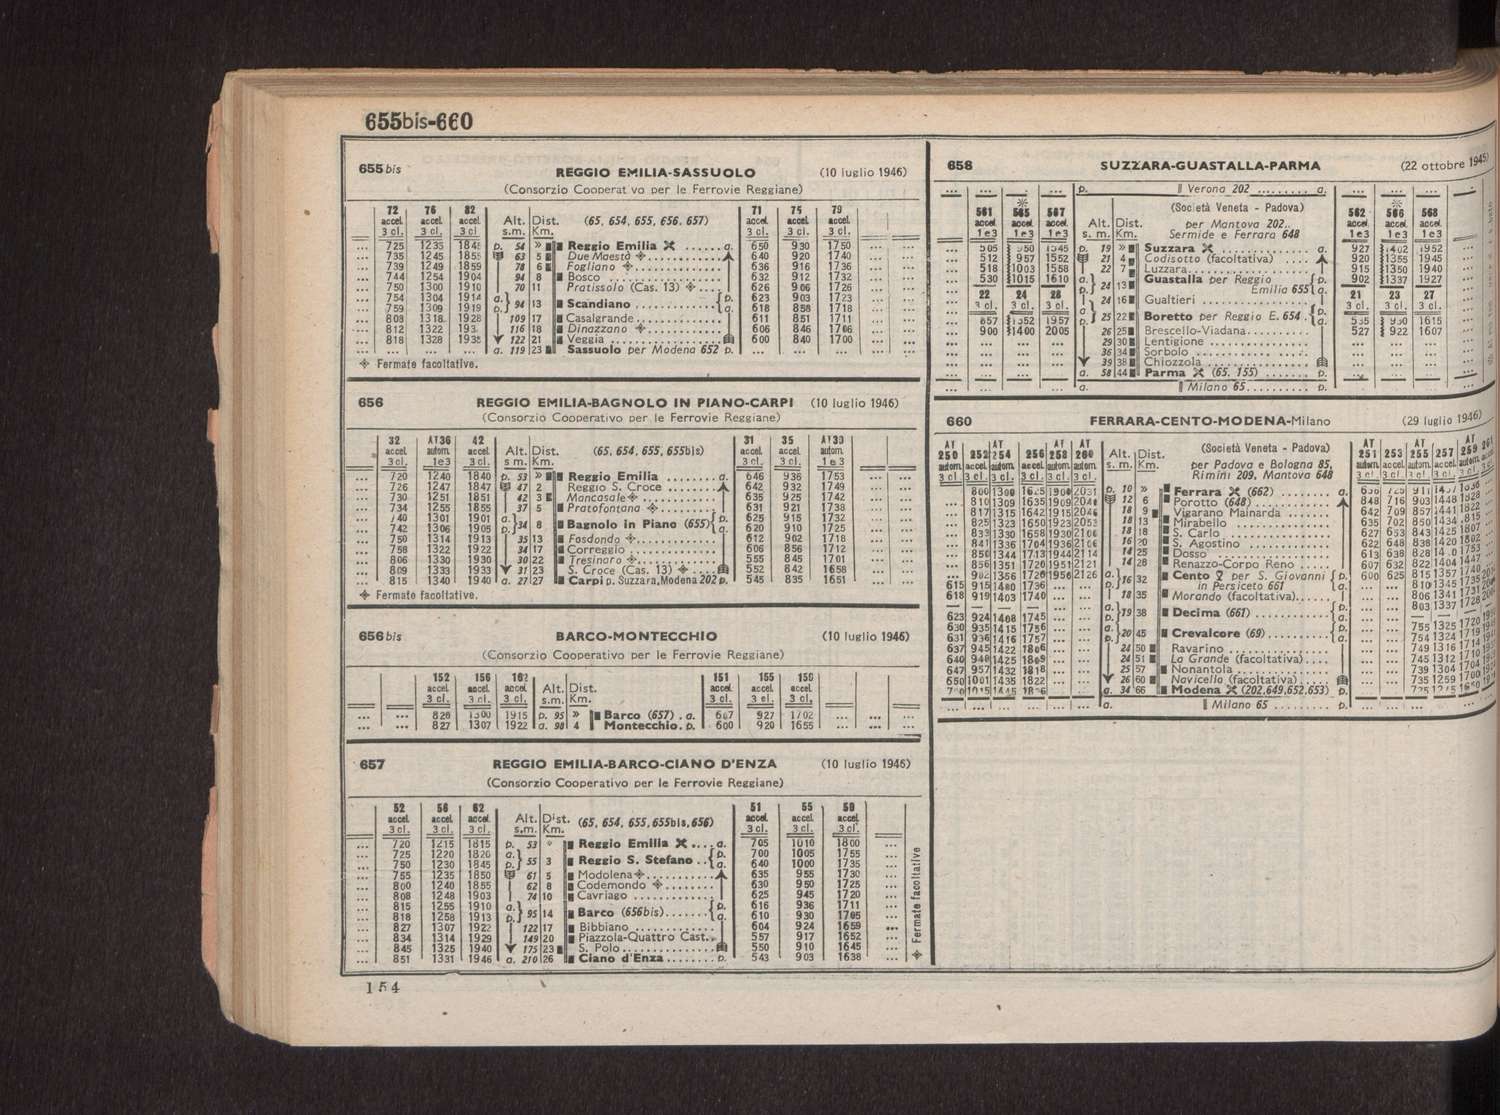 655bis-660
655 bis REGGIO EMILIA-SASSUOLO (10 luglio 1946)
(Consorzio Cooperat vo per le Ferrovie Reggiane)
72 76 82 Alt. Dist. (65, 654, 655, 656, 657) 71 75 79
accel. accel. accel. s.m. Km. accel. accel. accel.
3 cl. 3 cl. 3 cl. 3 cl. 3 cl. 3 cl.
... 725 1235 1845 p. 54 » Reggio Emilia ...... a. 650 930 1750 ... ...
... 735 1245 1855 63 5 Due Maestà ......... 640 920 1740 ... ...
... 739 1249 1859 78 6 Fogliano ......... 636 916 1736 ... ...
... 744 1254 1904 94 8 Bosco ......... 632 912 1732 ... ...
... 750 1300 1910 70 11 Pratissolo (Cas. 13) .... 626 906 1726 ... ...
... 754 1304 1914 a. 94 13 Scandiano ......... p. 623 903 1723 ... ...
... 759 1309 1919 p. a. 618 858 1718 ... ...
... 808 1318 1928 109 17 Casalgrande ......... 611 851 1711 ... ...
... 812 1322 193. 116 18 Dinazzano ......... 606 846 1706 ... ...
... 818 1328 1938 122 21 Veggia ......... 600 840 1700 ... ...
... ... ... ... a. 119 23 Sassuolo per Modena 652 p. ... ... ... ... ...
Fermate facoltative.
656 REGGIO EMILIA-BAGNOLO IN PIANO-CARPI (10 luglio 1946)
(Consorzio Cooperativo per le Ferrovie Reggiane)
32 AT36 42 Alt. Dist. (65, 654, 655, 655bis) 31 35 AT39
accel. autom. accel. s m. Km. accel. accel. autom.
3 cl. 1e3 3 cl. 3 cl. 3 cl. 1 e3
... 720 1240 1840 p. 53 » Reggio Emilia ........ a. 646 936 1753 ... ...
... 726 1247 1847 47 2 Reggio S. Croce ....... 642 932 1749 ... ...
... 730 1251 1851 42 3 Mancasale ......... 635 925 1742 ... ...
... 734 1255 1855 37 5 Pratofontana ......... 631 921 1738 ... ...
... 740 1301 1901 a. 34 8 Bagnolo in Piano (655) p. 625 915 1732 ... ...
... 742 1306 1906 p. a. 620 910 1725 ... ...
... 750 1314 1913 35 13 Fosdondo ......... 612 902 1718 ... ...
... 758 1322 1922 34 17 Correggio ......... 606 856 1712 ... ...
... 806 1330 1930 30 22 Tresinaro ......... 555 845 1701 ... ...
... 809 1333 1933 31 23 S. Croce (Cas. 13) .... 552 842 1658 ... ...
... 815 1340 1940 a. 27 27 Carpi p. Suzzara, Modena 202 p. 545 835 1651 ... ...
Fermate facoltative.
656 bis BARCO-MONTECCHIO (10 luglio 1946)
(Consorzio Cooperativo per le Ferrovie Reggiane)
152 156 162 Alt. Dist. 151 155 159
accel. accel. accel. s.m. Km. accel. accel. accel.
3 cl. 3 cl. 3 cl. 3 cl. 3 cl. 3 cl.
... ... 820 1300 1915 p. 95 » Barco (657) . a. 607 927 1702 ... ... ...
... ... 827 1307 1922 a. 98 4 Montecchio. p. 600 920 1655 ... ... ...
657 REGGIO EMILIA-BARCO-CIANO D'ENZA (10 luglio 1946)
(Consorzio Cooperativo per le Ferrovie Reggiane)
52 56 62 Alt. Dist. (65, 654, 655, 655bis, 656) 51 55 59
accel. accel. accel. s.m. Km. accel. accel. accel.
3 cl. 3 cl. 3 cl. 3 cl. 3 cl. 3 cl.
... 720 1215 1815 p. 53 » Reggio Emilia .... a. 705 1010 1800 ...
... 725 1220 1820 a. 55 3 Reggio S. Stefano .. p. 700 1005 1755 ...
... 750 1230 1845 p. a. 640 1000 1735 ...
... 755 1235 1850 61 5 Modolena ......... 635 955 1730 ...
... 800 1240 1855 62 8 Codemondo ......... 630 950 1725 ...
... 808 1248 1903 74 10 Cavriago ......... 625 945 1720 ...
... 815 1255 1910 a. 95 14 Barco (656bis) ....... p. 616 936 1711 ...
... 818 1258 1913 p. a. 610 930 1705 ...
... 827 1307 1922 122 17 Bibbiano ......... 604 924 1659 ...
... 834 1314 1929 149 20 Piazzola-Quattro Cast. 557 917 1652 ...
... 845 1325 1940 175 23 S. Polo ......... 550 910 1645 ...
... 851 1331 1946 a. 210 26 Ciano d'Enza ........ p. 543 903 1638 ...
Fermate facoltative
154
658 SUZZARA-GUASTALLA-PARMA (22 ottobre 1945)
... ... ... ... p. Verona 202 ......... a. ... ... ... ...
561 565 567 Alt. Dist. (Società Veneta - Padova) 562 566 568
accel. accel. accel. s. m. Km. per Mantova 202.. accel. accel. accel.
1e3 1e3 1e3 Sermide e Ferrara 648 1e3 1e3 1e3
... 505 950 1545 p. 19 » Suzzara a. 927 1402 1952
... 512 957 1552 21 4 Codisotto (facoltativa) 920 1355 1945
... 518 1003 1558 22 7 Luzzara ......... 915 1350 1940
... 530 1015 1610 a. 24 13 Guastalla per Reggio p. 902 1337 1927
22 24 28 p. Emilia 655 a. 21 23 27
3 cl. 3 cl. 3 cl. 24 16 Gualtieri ......... 3 cl. 3 cl. 3 cl.
... 857 1352 1957 a. p. 25 22 Boretto per Reggio E. 654 . p. a. 535 930 1615
... 900 1400 2005 26 25 Brescello-Viadana .......... 527 922 1607
... ... ... ... 29 30 Lentigione ......... ... ... ...
... ... ... ... 36 34 Sorbolo ......... ... ... ...
... ... ... ... 39 38 Chiozzola ......... ... ... ...
... ... ... ... a. 58 44 Parma (65, 155) ....... p. ... ... ...
... ... ... ... a. Milano 65 .......... p. ... ... ... ...
660 FERRARA-CENTO-MODENA-Milano (29 luglio 1946)
AT 250 252 AT 254 256 AT 258 AT 260 Alt. Dist. (Società Veneta - Padova) AT 251 253 AT 255 257 AT 259 261
autom. accel. autom. accel. autom. autom. s. m. Km. per Padova e Bologna 85, autom. accel. autom. accel. autom.
3 cl 3 cl. 3 cl. 3 cl. 3 cl. 3 cl. Rimini 209, Mantova 648 3 cl. 3 cl. 3 cl. 3 cl.
... 800 1300 1625 1900 2031 p. 10 » Ferrara (662) ........ a.
... 810 1309 1635 1909 2040 12 6 Porotto (648) ........ 848 716 903 1448
... 817 1315 1642 1915 2046 18 9 Vigarano Mainarda ....... 642 709 857 1441
... 825 1323 1650 1923 2053 18 13 Mirabello ......... 635 702 850 1434
... 833 1330 1658 1930 2106 18 18 S. Carlo ......... 627 653 843 1425 1807
... 841 1336 1704 1936 2106 16 20 S. Agostino ......... 622 648 838 1420 1802
... 850 1344 1713 1944 2114 14 25 Dosso ......... 613 638 828 1753
... 856 1351 1720 1951 2121 14 28 Renazzo-Corpo Reno ..... 607 632 822 1404 1447
... 902 1356 1726 1956 2126 a. 16 32 Cento per S. Giovanni p. 600 625 815 1357 1740
615 915 1400 1736 ... ... p. in Persiceto 661 a. ... ... 810 1345 1735
618 919 1403 1740 ... ... 18 35 Morando (facoltativa) ...... ... ... 806 1341 1731
a. 19 38 Decima (661) .......... p. ... ... 803 1337 1728
623 924 1408 1745 ... ... p. a.
630 935 1415 1756 ... ... a. 20 45 Crevalcore (69) .......... p. ... ... 755 1325 1720
631 936 1416 1757 ... ... p. a. ... ... 754 1324 1719
637 945 1422 1806 ... ... 24 50 Ravarino ......... ... ... 749 1316 1714
640 940 1425 1809 ... ... 24 51 La Grande (facoltativa) .... ... ... 745 1312 1710
647 957 1432 1818 ... ... 25 57 Nonantola ......... ... ... 739 1304 1704
650 1001 1435 1822 ... ... 26 60 Navicello (facoltativa) .... ... ... 735 1259 1700
1015 1445 1836 ... ... a. 34 66 Modena (202,649,652,653) p. ... ... 725 1245
... ... ... ... ... ... a. Milano 65 ......... p. ... ... ... ... ...